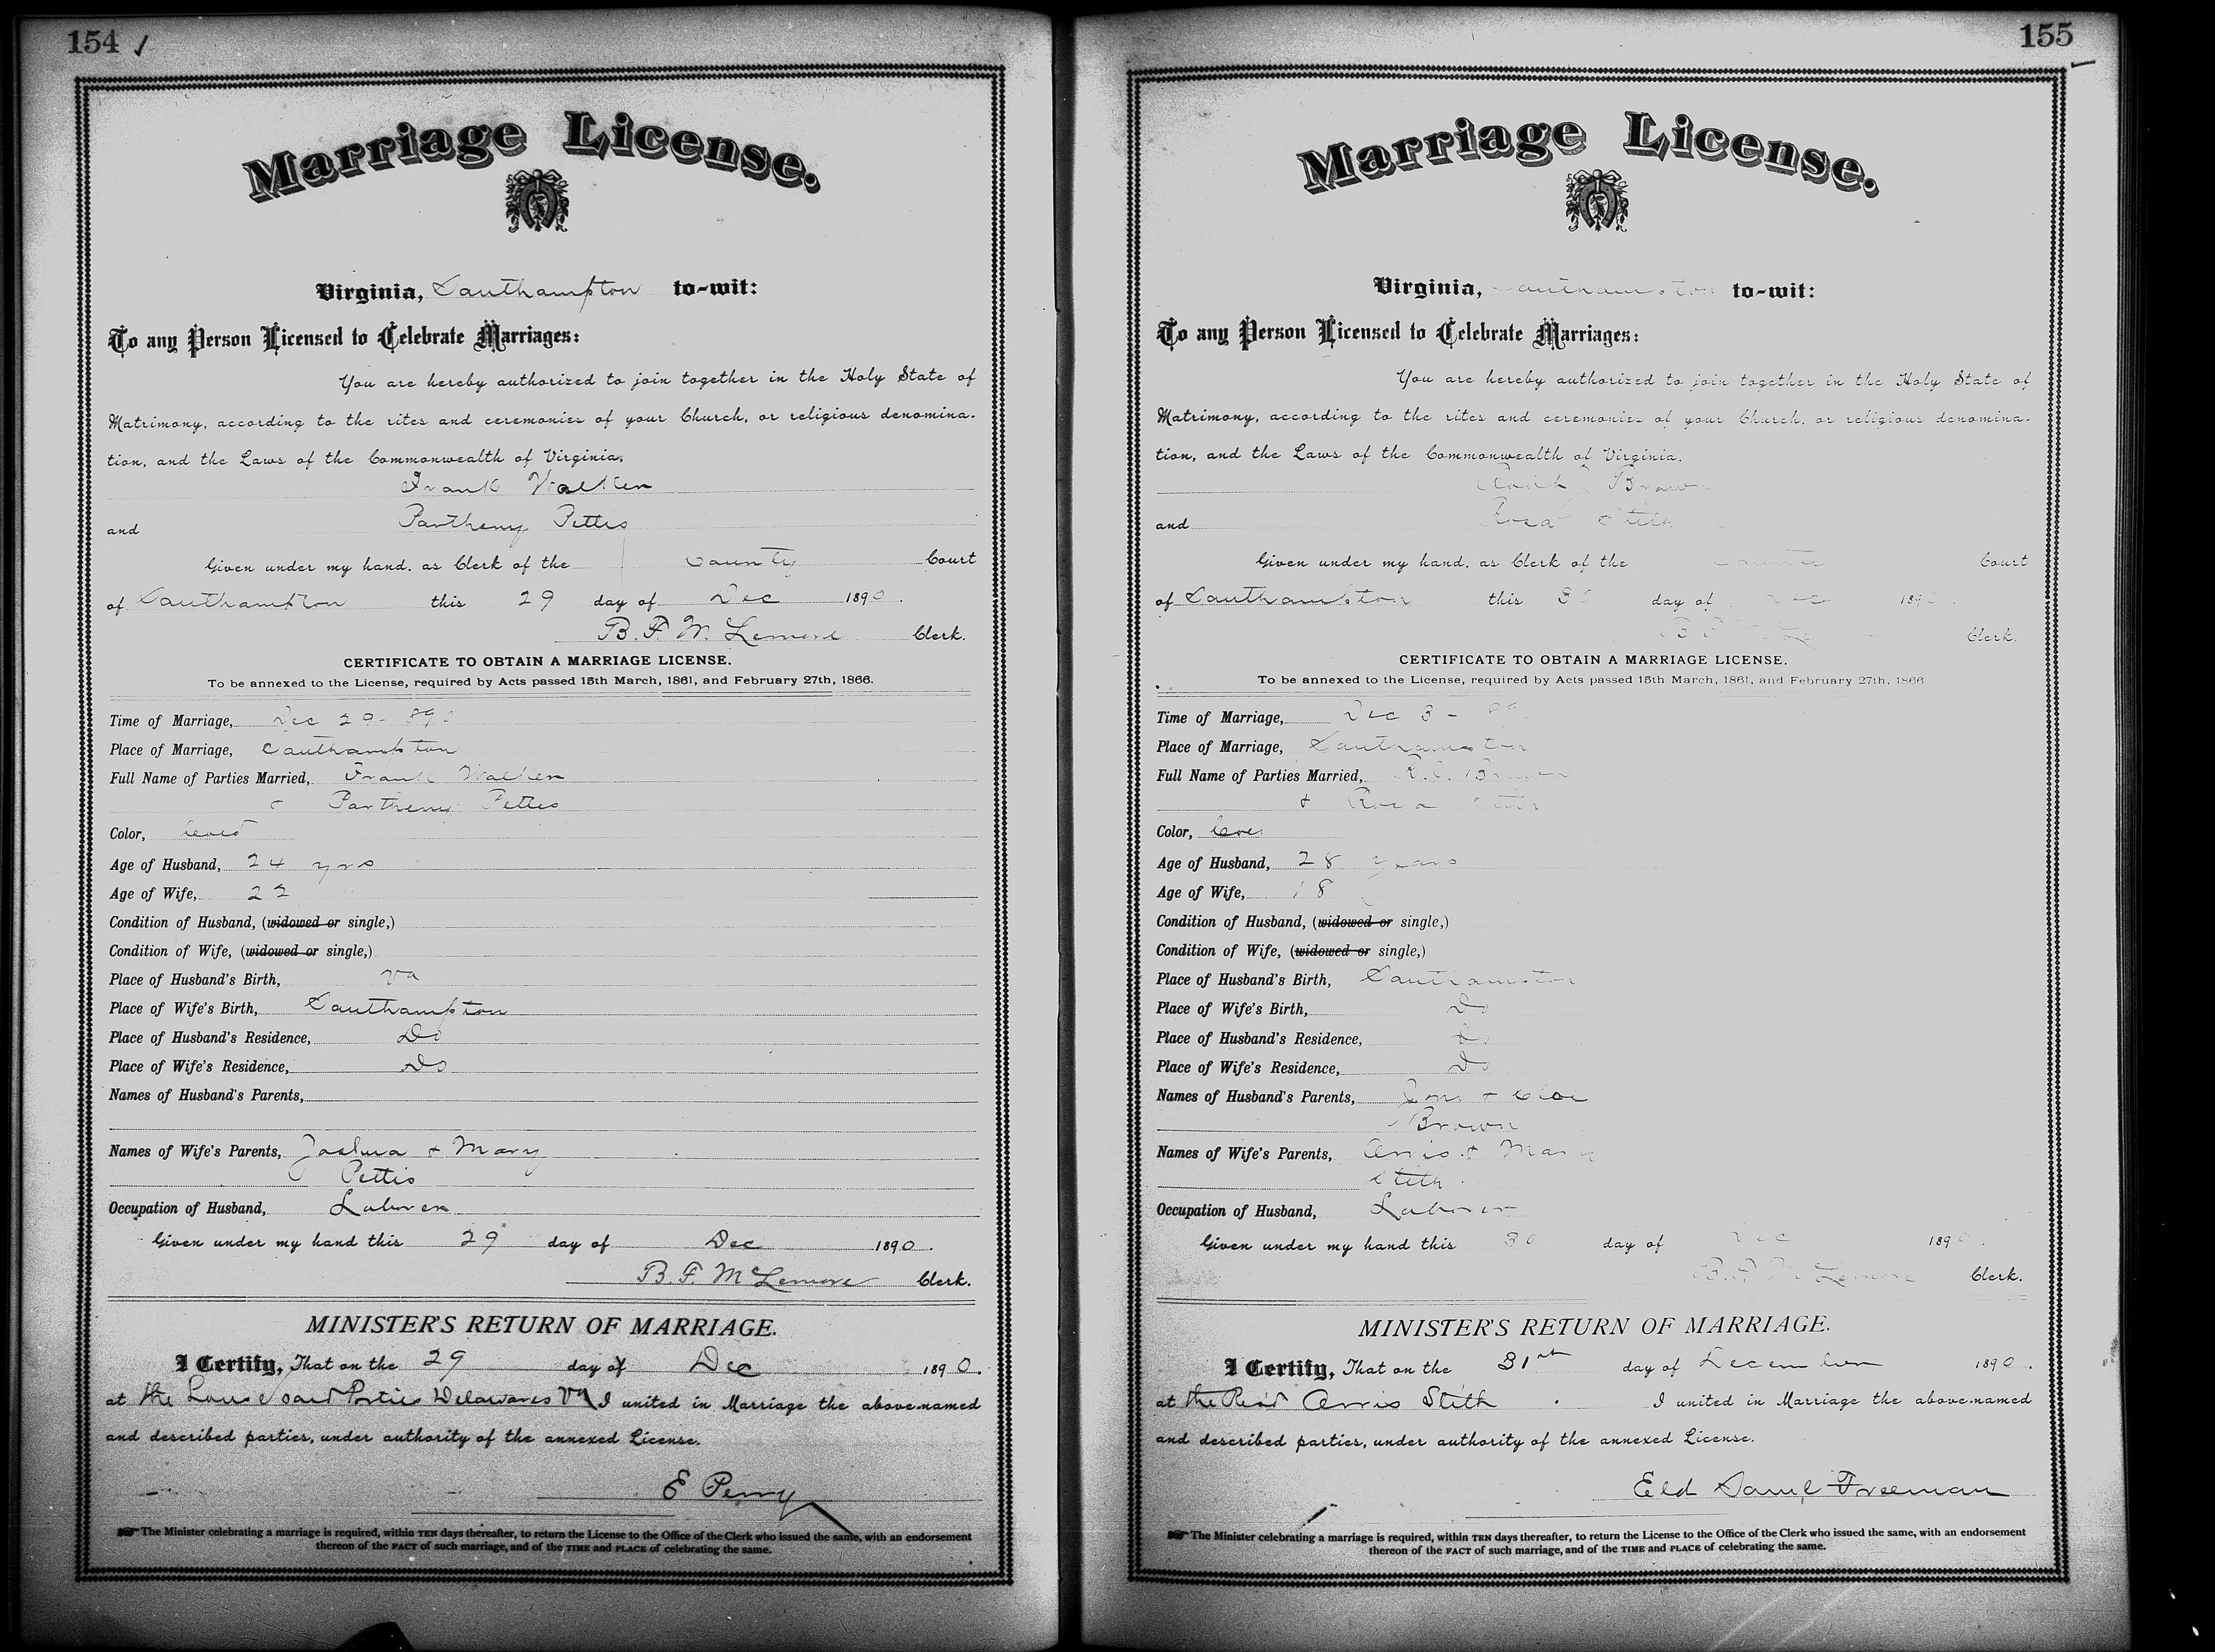 154
Marriage License.
Virginia, Southampton to-wit:
To any Person Licensed to Celebrate Marriages:
You are hereby authorized to join together in the Holy State of
Matrimony, according to the rites and ceremonies of your Church, or religious denomina-
tion, and the Laws of the Commonwealth of Virginia.
Frank Walker
and Partheny Pettis
Given under my hand, as Clerk of the County Court
of Southampton this 29 day of Dec 1890.
B. F. McLemore Clerk.
CERTIFICATE TO OBTAIN A MARRIAGE LICENSE.
To be annexed to the License, required by Acts passed 15th March, 1861, and February 27th, 1866.
Time of Marriage, Dec 29 - 890
Place of Marriage, Southampton
Full Name of Parties Married, Frank Walker
& Partheny Pettis
Color, Cold
Age of Husband, 24 yrs
Age of Wife, 22 "
Condition of Husband, (widowed or single,)
Condition of Wife, (widowed or single,)
Place of Husband's Birth, Va
Place of Wife's Birth, Southampton
Place of Husband's Residence, Do
Place of Wife's Residence, Do
Names of Husband's Parents,
Names of Wife's Parents, Joshua & Mary
Pettis
Occupation of Husband, Laborer
Given under my hand this 29 day of Dec 1890.
B. F. McLemore Clerk.
MINISTER'S RETURN OF MARRIAGE.
I Certify, That on the 29 day of Dec 1890.
at the Delawares Va I united in Marriage the above-named
and described parties, under authority of the annexed License.
E Perry
The Minister celebrating a marriage is required, within TEN days thereafter, to return the License to the Office of the Clerk who issued the same, with an endorsement
thereon of the FACT of such marriage, and of the TIME and PLACE of celebrating the same.
155
Marriage License.
Virginia, Southampton to-wit:
To any Person Licensed to Celebrate Marriages:
You are hereby authorized to join together in the Holy State of
Matrimony, according to the rites and ceremonies of your Church, or religious denomina-
tion, and the Laws of the Commonwealth of Virginia.
Brown
and Rosa Stith
Given under my hand, as Clerk of the County Court
of Southampton this 30 day of Dec 1890.
B F McLemore Clerk.
CERTIFICATE TO OBTAIN A MARRIAGE LICENSE.
To be annexed to the License, required by Acts passed 15th March, 1861, and February 27th, 1866
Time of Marriage, Dec 3 -
Place of Marriage, Southampton
Full Name of Parties Married, Brown
& Rosa Stith
Color, Col
Age of Husband, 28 years
Age of Wife, 18
Condition of Husband, (widowed or single,)
Condition of Wife, (widowed or single,)
Place of Husband's Birth, Southampton
Place of Wife's Birth, Do
Place of Husband's Residence, Do
Place of Wife's Residence, Do
Names of Husband's Parents, & Cloe
Brown
Names of Wife's Parents, Arris & Mary
Stith
Occupation of Husband, Laborer
Given under my hand this 30 day of Dec 1890.
B. F. McLemore Clerk.
MINISTER'S RETURN OF MARRIAGE.
I Certify, That on the 31st day of December 1890.
at the Resd Arris Stith I united in Marriage the above-named
and described parties, under authority of the annexed License.
Eld Saml Freeman
The Minister celebrating a marriage is required, within TEN days thereafter, to return the License to the Office of the Clerk who issued the same, with an endorsement
thereon of the FACT of such marriage, and of the TIME and PLACE of celebrating the same.